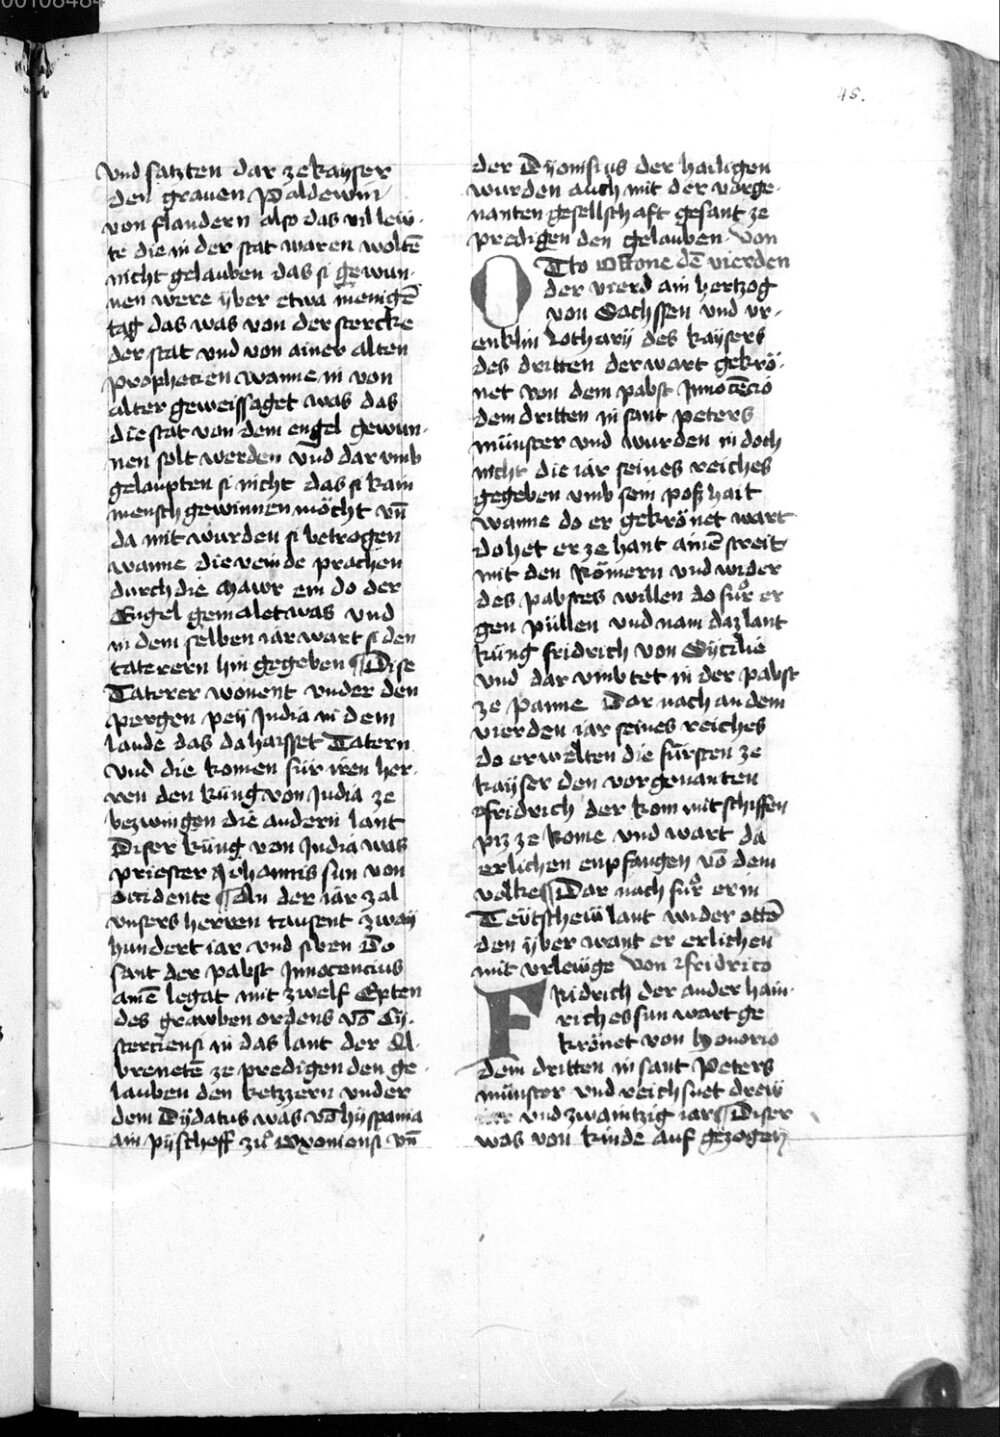 45.
vnd satzten dar ze kayser
den grauen Paldewin
von flandern also das vil lew-
te die in der stat waren woltē
nicht gelauben das si gewun-
nen were vber etwa menigē
tag das was von der stercke
der stat vnd von ainer alten
prophecien wanne in von
alter geweissaget was das
die stat von dem engel gewun-
nen solt werden vnd dar vmb
gelaupten si nicht das si kain
mensch gewinnen möcht vn̄
da mit wurden si betrogen
wanne die veinde prachen
durch die Mawr ein do der
Engel gemalet was vnd
in dem selben iar wart si den
taterern hin gegeben Dise
Taterer wonent vnder den
pergen pey India in dem
lande das da haisset Tatern
vnd die komen für iren her-
ren den küng von India ze
bezwingen die andern lant
Diser küng von India was
priester Johannis sun von
occidente An der iar zal
vnsers herren tausent zway
hundert iar vnd siben Do
sant der pabst Innocencius
ainē legat mit zwelf Epten
des grawben ordens vō Cy-
sterciensi in das lant der Al-
brenetē ze predigen den ge-
lauben den ketzzern vnder
dem Dydatus was vō hyspania
ain pyschoff zu Oxoniensi vn̄
der Dyonisius der hailigen
wurden auch mit der vorge-
nanten gesellschaft gesant ze
predigen den gelauben. Von
OTto Ottone dē vierden
der vierd ain hertzog
von Sachssen vnd vr-
enklin Lotharij des kaysers
des dritten der wart gekrö-
net von dem pabst Innocēcio
dem dritten in sant peters
münster vnd wurden in doch
nicht die iar seines reiches
gegeben vmb sein poßhait
wanne do er gekrönet wart
do het er ze hant ainē streit
mit den Römern vnd wider
des pabstes willen do fuͦr er
gen püllen vnd nam daz lant
küng fridrich von Sycilie
vnd dar vmb tet in der pabst
ze panne Dar nach an dem
vierden iar seines reiches
do erwelten die fürsten ze
kayser den vorgenanten
fridrich der kom mit schiffen
piz ze Rome vnd wart da
erlichen enpfangen vō dem
volke Dar nach fuͦr er in
Teütschew lant wider ottō
den vber want er erlichen
mit vrlewge Von fridrico
FRidrich der ander hain-
riches sun wart ge
krönet von honorio
dem dritten in sant Peters
münster vnd reichsnet drew
iar vnd zwaintzig iar Diser
was von kinde auf gezogen